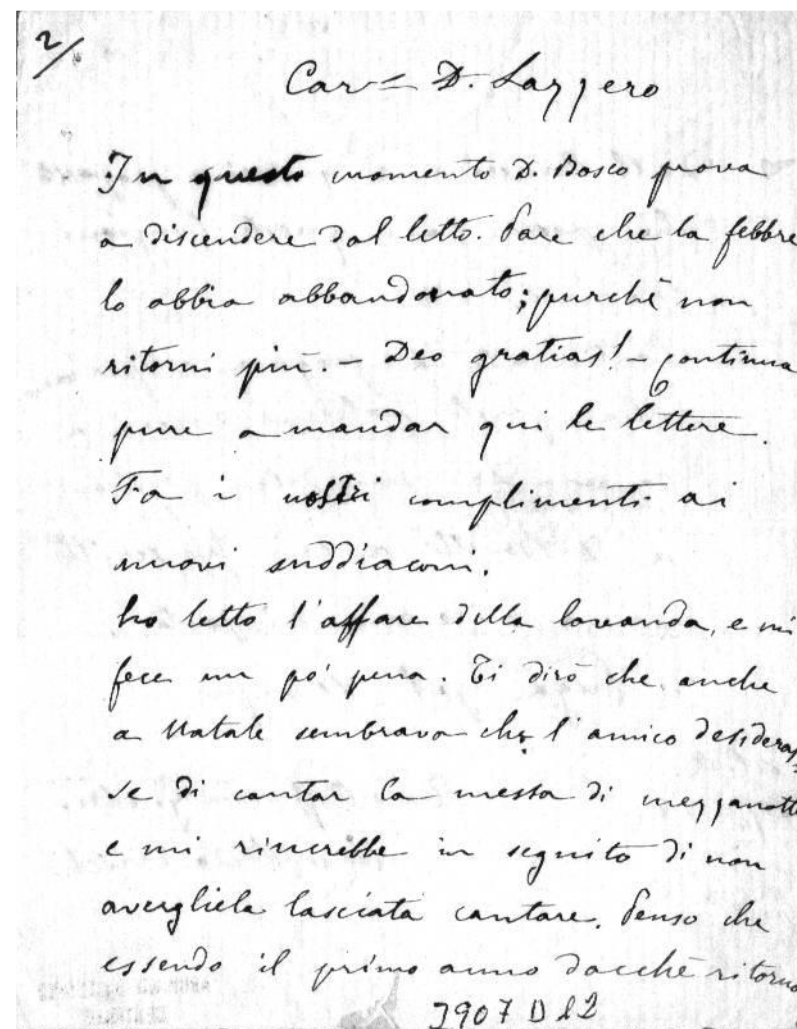 2/
Car.= D. Lazzero
In questo momento D. Bosco prova
a discendere dal letto. Pare che la febbre
lo abbia abbandonato; purché non
ritorni più. - Deo gratias! - Continua
pure a mandar qui le lettere.
Fa i nostri complimenti ai
nuovi suddiaconi.
ho letto l'affare della lavanda, e mi
fece un po' pena. Ti dirò che anche
a Natale sembrava che l'amico desideras-
se di cantar la messa di mezzanotte
e mi rincrebbe in seguito di non
avergliela lasciata cantare. Penso che
essendo il primo anno dacché ritorno
3907 D 12